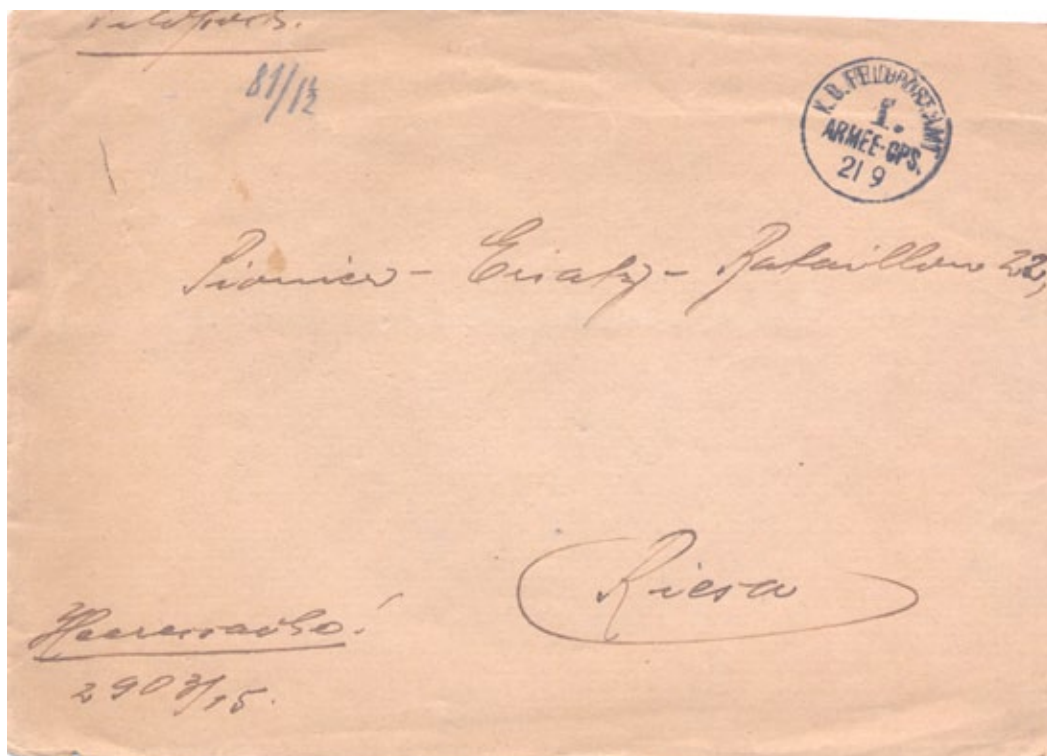 Feldpost.
81/12
K. B. FELDPOSTAMT
I.
ARMEE-CPS.
21 9
Pionier - Ersatz - Bataillon 22,
Riesa
Heeressache!
2903/15.